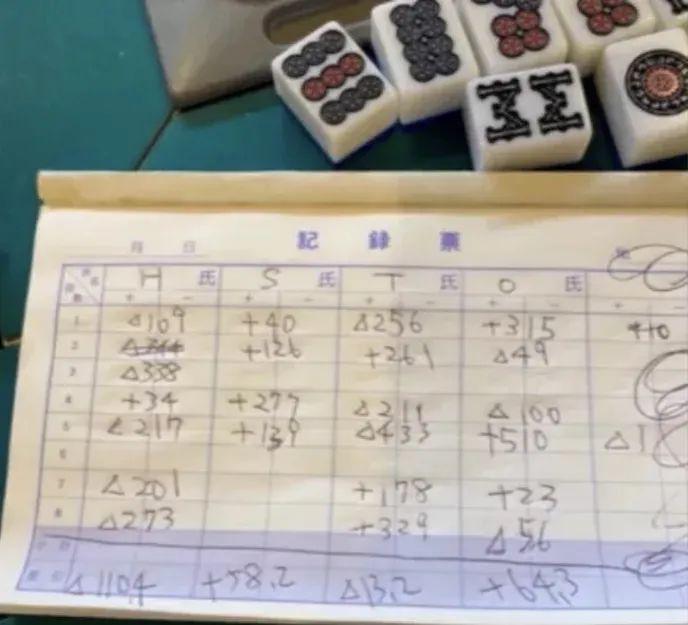 月 日
記録票
H 氏 S 氏 T 氏 O 氏
+ - + - + - + - + -
1 △109 +40 △256 +315 +10
2 +126 +261 △49
3 △338
4 +34 +277 △211 △100
5 △217 +139 △433 +510 △1
6
7 △201 +178 +23
8 △273 +329 △56
△110,4 +58,2 △13,2 +64,3